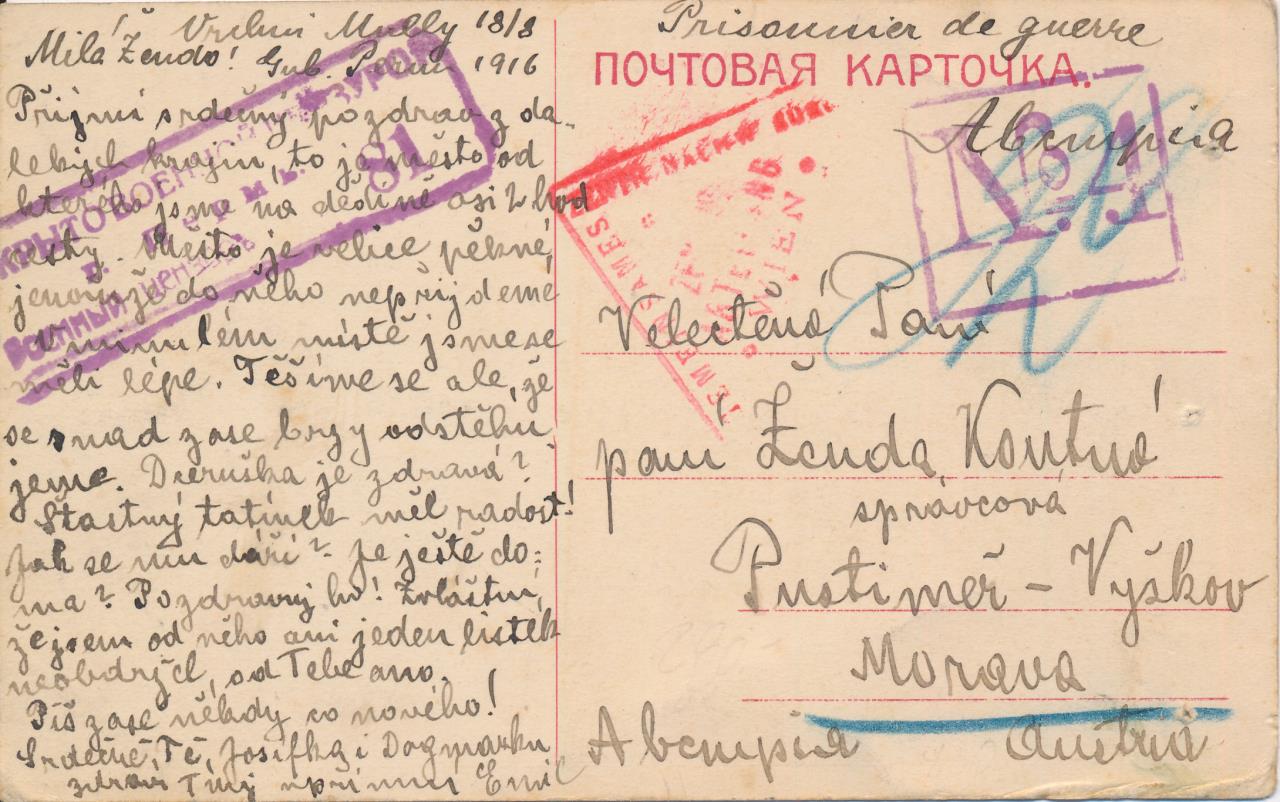 Vrchni Mully 18/8
Milá Žendo! Gub. Perm 1916
Přijmi srdečný pozdrav z da-
lekých krajin, to je město od
kterého jsme na dědině asi 2 hod
cesty. Město je velice pěkné,
jenomže do něho nepřijdeme
V minulém místě jsme se
měli lépe. Těšíme se ale, že
se snad zase brzy odstěhu
jeme. Dceruška je zdravá?
Štastný tatínek měl radost!
Jak se mu daří? Je ještě do=
ma? Pozdravuj ho! Zvláštní,
že jsem od něho ani jeden lístek
neobdržel, od Tebe ano.
Piš zase někdy co nového!
Srdečně Tě, Josífka i Dagmarku
zdraví Tvůj upřímný Emil
ВОЕННОЙ ЦЕНЗУРОЙ
г. Пермь.
Военный цензоръ
81
Prisonnier de guerre
ПОЧТОВАЯ КАРТОЧКА.
Австрія
№ 4
WIEN
Velectěná Paní
paní Ženda Koutná
správcová
Pustiměř - Vyškov
Morava
Австрія Austria